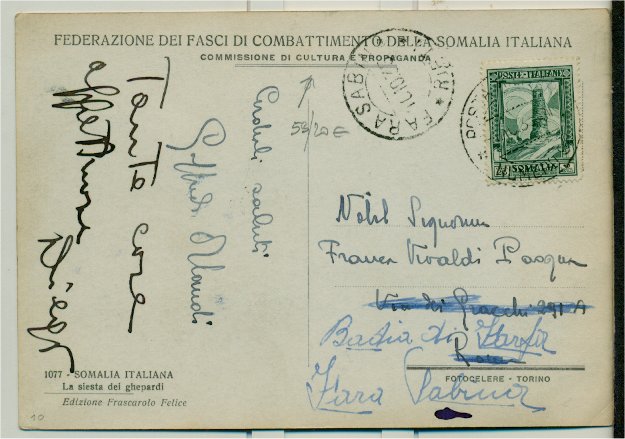 FEDERAZIONE DEI FASCI DI COMBATTIMENTO DELLA SOMALIA ITALIANA
COMMISSIONE DI CULTURA E PROPAGANDA
FARA SABINA
POSTE ITALIANE
SOMALIA
Tante cose
affettuose
Cordiali saluti
Nobil Signorina
Franca Vivaldi Pasqua
Via dei Gracchi 291 A
Roma
Badia di Farfa
Fara Sabina
FOTOCELERE - TORINO
1077 - SOMALIA ITALIANA
La siesta dei ghepardi
Edizione Frascarolo Felice
10